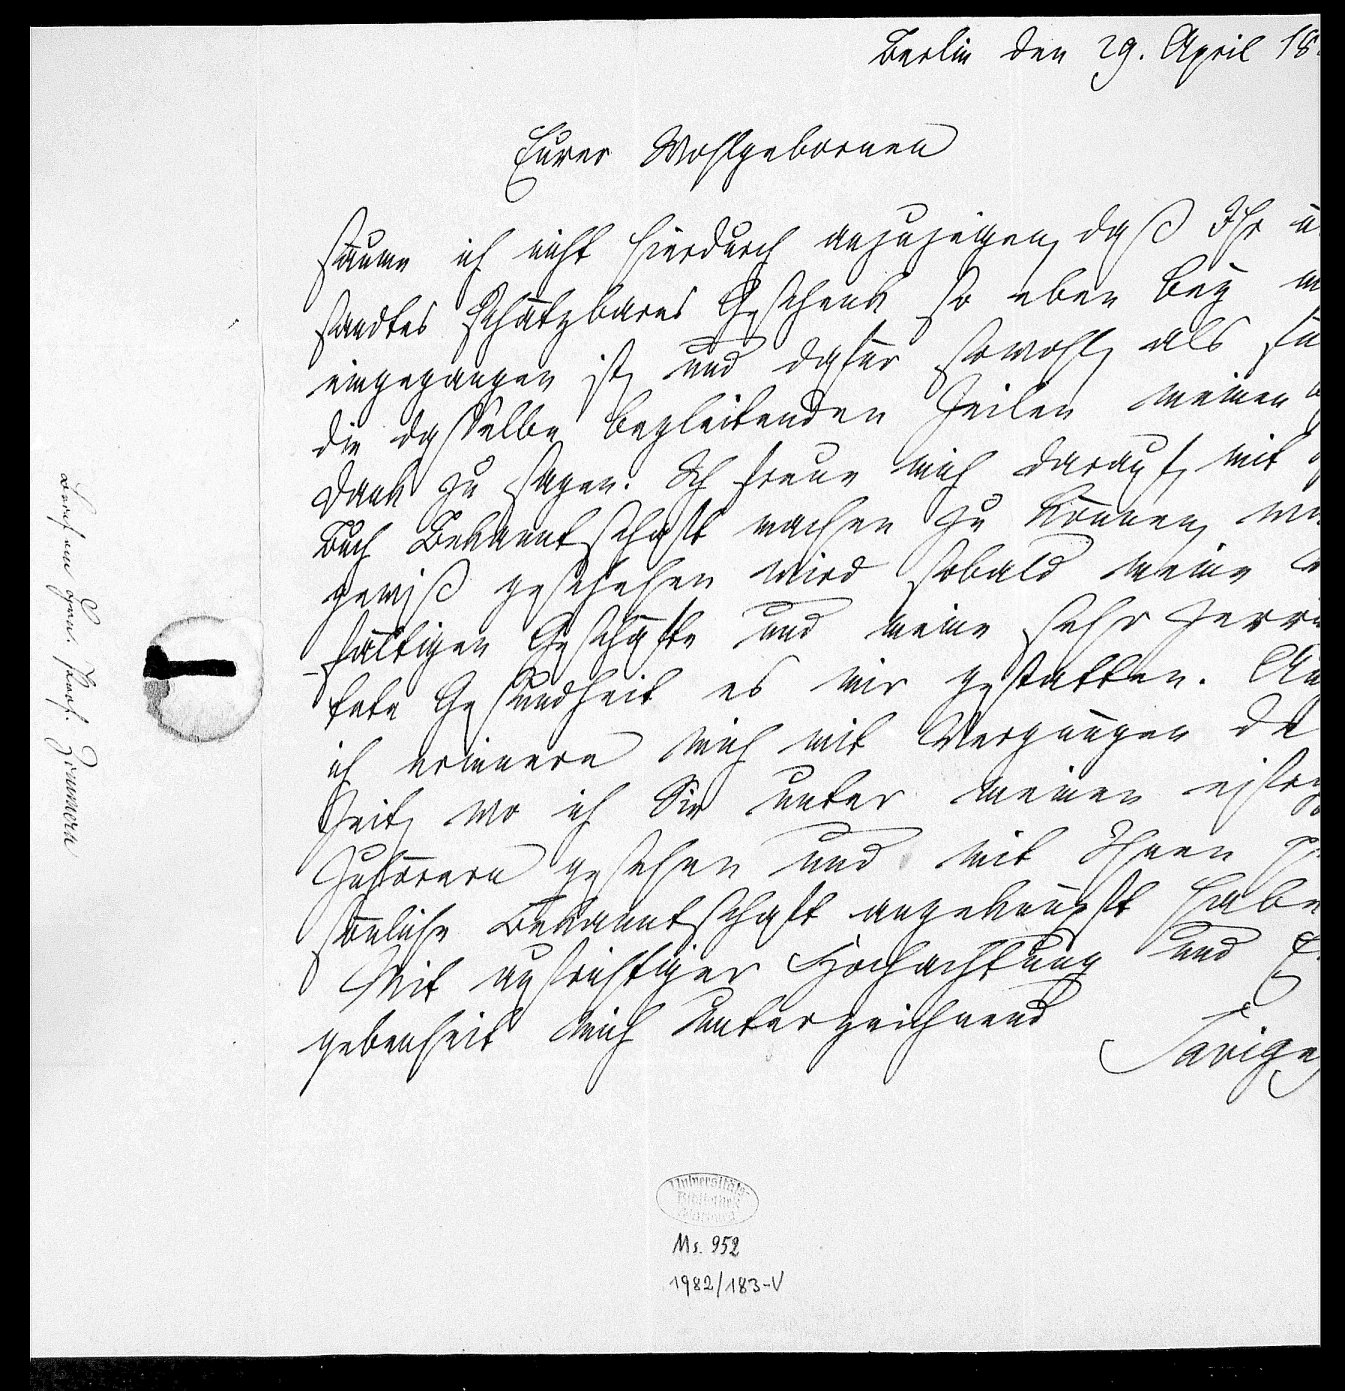 Berlin den 29. April 18
Eurer Wohlgebornen
säume ich nicht hierdurch anzuzeigen, daß Ihr ü
sandtes schätzbares Geschenk so eben bey m
eingegangen ist, und dafür sowohl, als fü
die dasselbe begleitenden Zeilen meinen
Dank zu sagen. Ich freue mich darauf, mit
Buch Bekanntschaft machen zu können, w
gewiß geschehen wird sobald meine
fältigen Geschäfte und meine sehr zerrü
tete Gesundheit es mir gestatten. Au
ich erinnere mich mit Vergnügen de
Zeit, wo ich Sie unter meinen
Zuhörern gesehen und mit Ihnen
sönliche Bekanntschaft angeknüpft habe
Mit aufrichtiger Hochachtung und E
gebenheit mich unterzeichnend
Savigny
Prof. Zimmern
Universitäts-
Bibliothek
Ms. 952
1982/183-V